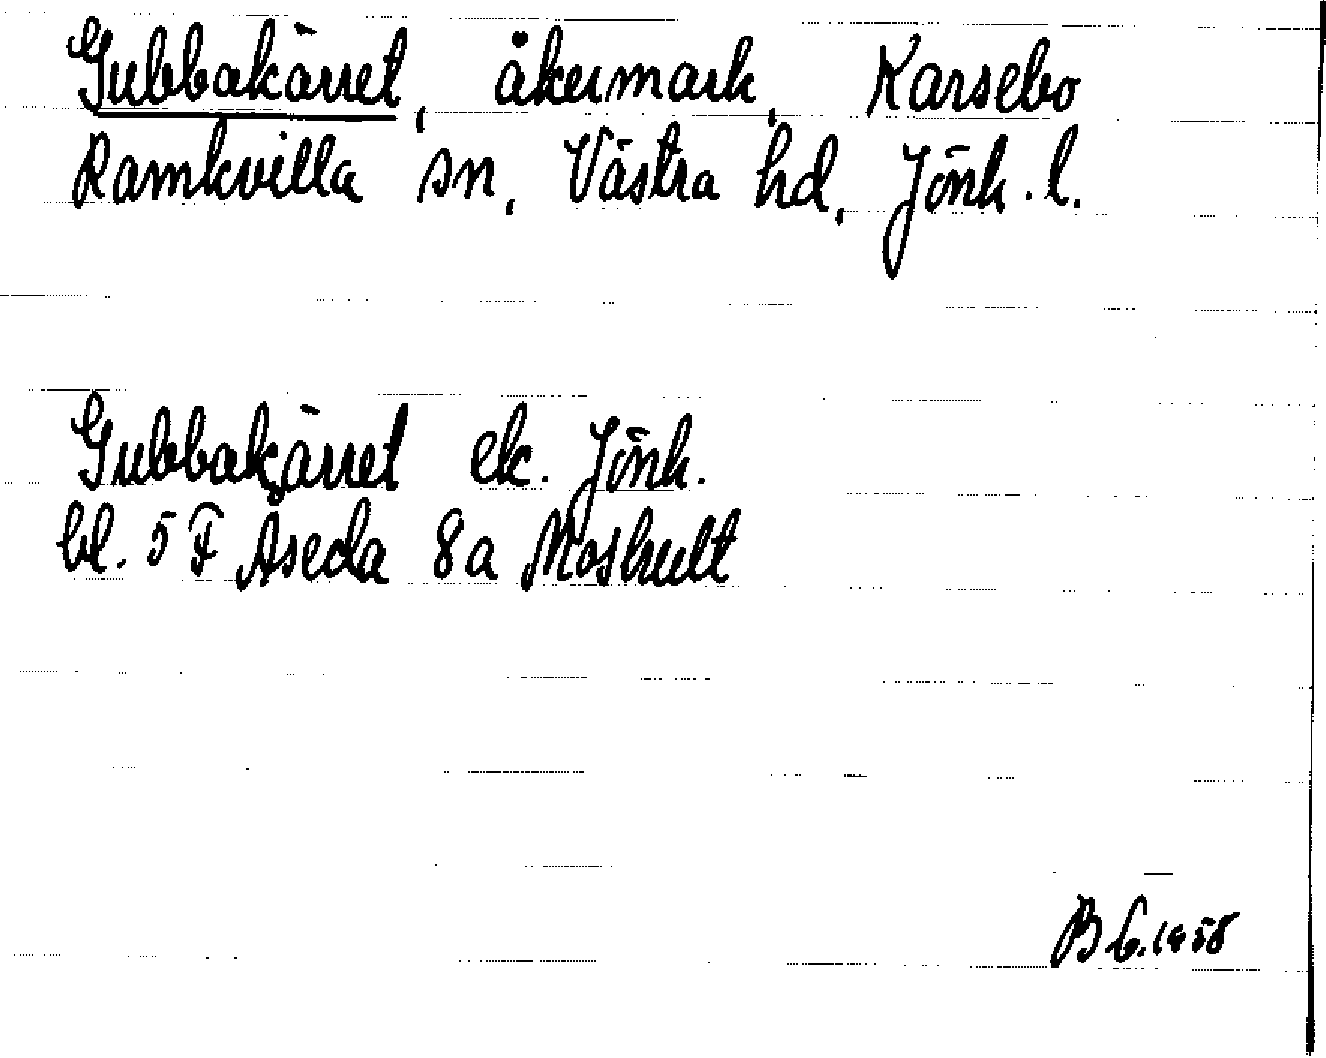 Gubbakärret, åkermark, Karsebo
Ramkvilla sn, Västra hd, Jönk. l.
Gubbakärret ek. Jönk.
bl. 5 F Åseda 8a Moshult
1958